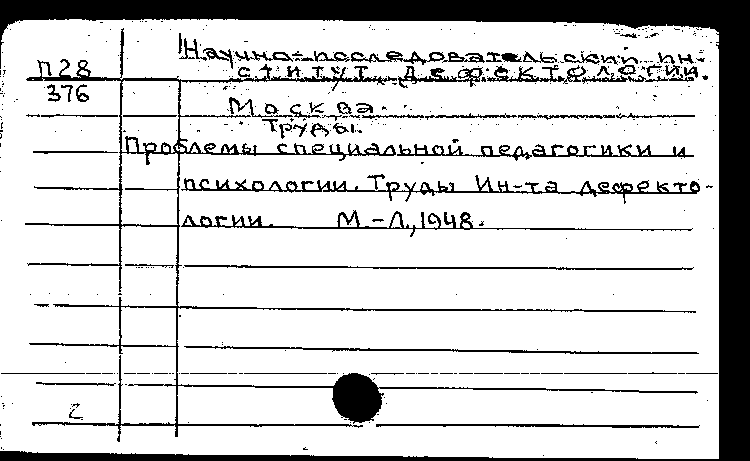 Научно-последовательский ин-
П28 ститут дефектологии.
376
Москва.
Труды.
Проблемы специальной педагогики и
психологии. Труды Ин-та дефекто-
логии. М.-Л., 1948.
2